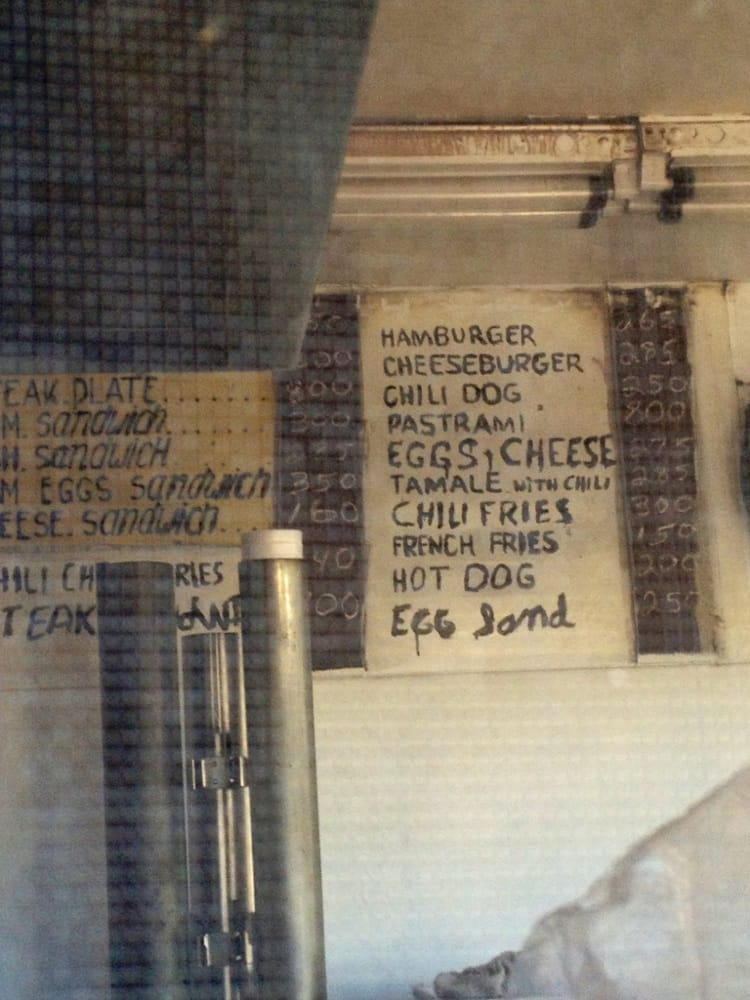 EAK PLATE........
M. Sandwich.....
H. SandwicH.....
M EGGS Sandwich
EESE. Sandwich....
HILI CH RIES
TEAK
350
160
40
00
HAMBURGER
CHEESEBURGER
CHILI DOG
PASTRAMI
EGGS, CHEESE
TAMALE WITH CHILI
CHILI FRIES
FRENCH FRIES
HOT DOG
EGG Sand
265
285
250
800
275
285
300
150
200
250